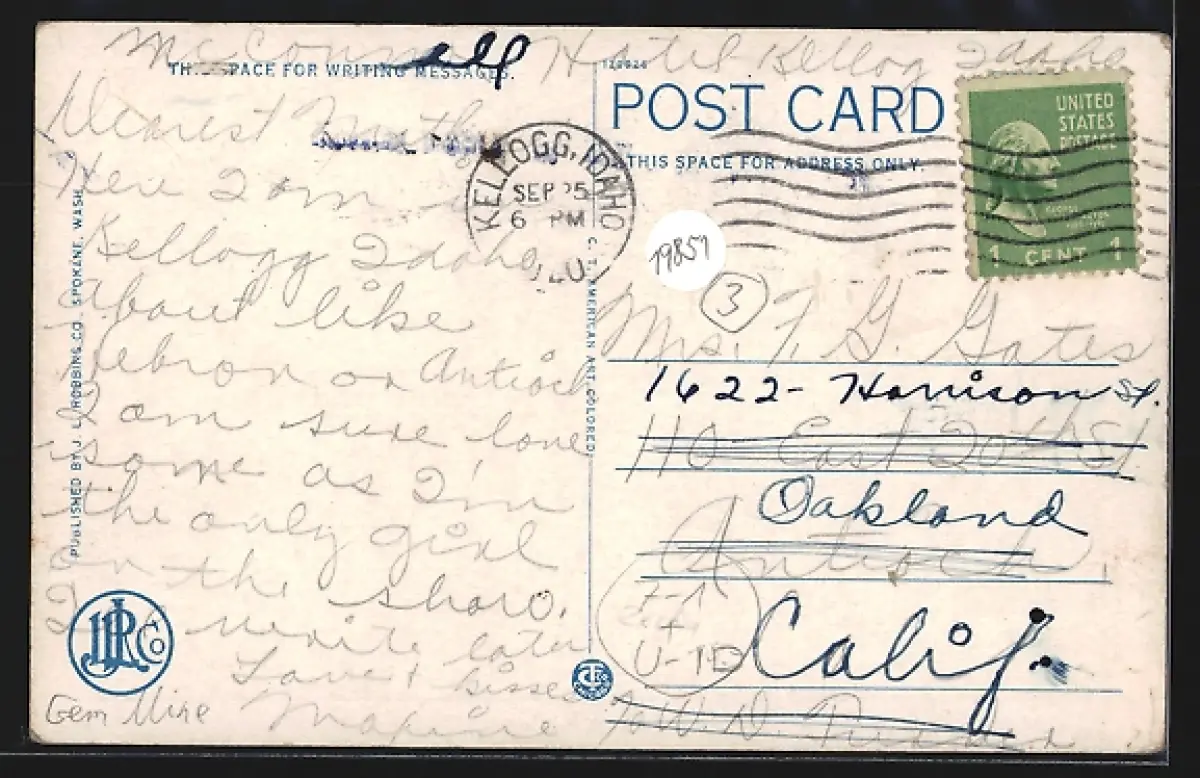 McConnell Hotel Kellog Idaho
SPACE FOR WRITING MESSAGES.
123924
POST CARD
THIS SPACE FOR ADDRESS ONLY.
UNITED
STATES
POSTAGE
GEORGE
1 CENT 1
KELLOGG, IDAHO
SEP 25
6 PM
19851
3
Dearest
Here I am
Kellogg Idaho,
about like
Hebron or Antioch
I am sure lone
some as I'm
the only girl
on the show.
write later
Love &
Maxine
Mrs. T. G. Gates
1622- Harrison St.
110 East 20th St.
Oakland
Antioch.
Calif.
% W. D.
U-ID
Gem Mine
JLRCo
PUBLISHED BY J. L. ROBBINS CO., SPOKANE, WASH.
C. T. AMERICAN ART COLORED